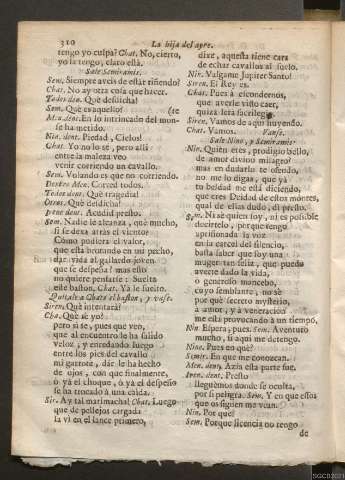 310
La hija del ayre.
tengo yo culpa? Chat. No, cierto,
yo la tengo, claro està.
Sale Semiramis.
Sem. Siempre aveis de estàr riñendo?
Chat. No ay otra cosa que hacer.
Todos den. Què desdicha!
Sem. Què es aquello? (te
Men. dent. En lo intrincado del mon-
se ha metido.
Nin. dent. Piedad, Cielos!
Chat. Yo no lo sè, pero alli
entre la maleza veo
venir corriendo un cavallo.
Sem. Volando es que no corriendo.
Dentro Men. Corred todos.
Todos dent. Què tragedia!
Otros. Què desdicha!
dent. Acudid presto.
Sem. Nadie le alcanza, què mucho,
si se dexa atràs el viento?
Còmo pudiera el valor,
que està brotando en mi pecho,
dàr vida al gallardo joven
que se despeña? mas esto
no quiere pensarse: Suelta
este bastòn. Chat. Yà le suelto.
Quitale a Chato el baston, y vase.
Siren. Què intentarà?
Cha. Què sè yo?
pero sì sè, pues que veo,
que al encuentro le ha salido
veloz, y enredando luego
entre los pies del cavallo
mi garrote, dàr le ha hecho
de ojos, con que finalmente,
ò yà el choque, ò yà el despeño
se ha trocado à una caìda.
Sir. Ay tal marimacha! Chat. Luego
que de pellejos cargada
la vì en el lance primero,
dixe, aquesta tiene cara
de echar cavallos al suelo.
Nin. Valgame Jupiter Santo!
Siren. El Rey es.
Chat. Pues à escondernos,
que averle visto caer,
quizà serà sacrilegio.
Siren. Vamos de aqui huyendo.
Chat. Vamos. Vanse.
Sale Nino, y Semiramis.
Nin. Quièn eres, prodigio bello,
de amor divino milagro?
mas en dudarlo te ofendo,
no me lo digas, que yà
tu beldad me està diciendo,
que eres Deidad de estos montes,
qual de ellas dudo, di presto.
Sem. Ni sè quien soy, ni es posible
decirtelo, porque tengo
aprisionada la voz
en la carcel del silencio,
basta saber que soy una
muger tan feliz, que puedo
averte dado la vida,
ò generoso mancebo,
cuyo semblante, no sè
por què secreto mysterio,
à amor, y à veneracion
me està provocando à un tiempo.
Nin. Espera, pues. Sem. Aventuro
mucho, si aqui me detengo.
Nino. Pues en què?
Semir. En que me conozcan.
Men. dent. Azia esta parte fue.
dent. Presto
lleguèmos donde se oculta,
por si peligra. Sem. Y en que essos
que os siguen me vean.
Nin. Por què?
Sem. Porque licencia no tengo
de